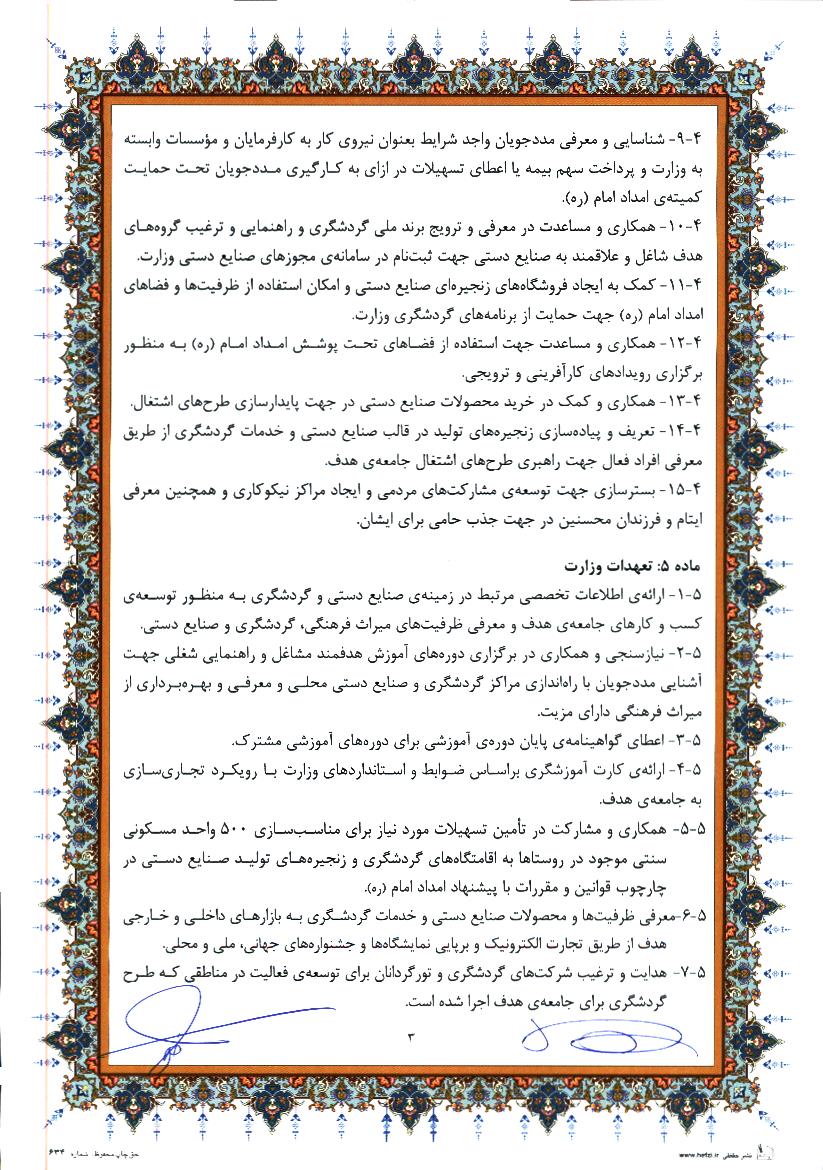 ۹-۴- شناسایی و معرفی مددجویان واجد شرایط بعنوان نیروی کار به کارفرمایان و مؤسسات وابسته
به وزارت و پرداخت سهم بیمه یا اعطای تسهیلات در ازای به کارگیری مددجویان تحت حمایت
کمیته‌ی امداد امام (ره).
۱۰-۴- همکاری و مساعدت در معرفی و ترویج برند ملی گردشگری و راهنمایی و ترغیب گروه‌های
هدف شاغل و علاقمند به صنایع دستی جهت ثبت‌نام در سامانه‌ی مجوزهای صنایع دستی وزارت.
۱۱-۴- کمک به ایجاد فروشگاه‌های زنجیره‌ای صنایع دستی و امکان استفاده از ظرفیت‌ها و فضاهای
امداد امام (ره) جهت حمایت از برنامه‌های گردشگری وزارت.
۱۲-۴- همکاری و مساعدت جهت استفاده از فضاهای تحت پوشش امداد امام (ره) به منظور
برگزاری رویدادهای کارآفرینی و ترویجی.
۱۳-۴- همکاری و کمک در خرید محصولات صنایع دستی در جهت پایدارسازی طرح‌های اشتغال.
۱۴-۴- تعریف و پیاده‌سازی زنجیره‌های تولید در قالب صنایع دستی و خدمات گردشگری از طریق
معرفی افراد فعال جهت راهبری طرح‌های اشتغال جامعه‌ی هدف.
۱۵-۴- بسترسازی جهت توسعه‌ی مشارکت‌های مردمی و ایجاد مراکز نیکوکاری و همچنین معرفی
ایتام و فرزندان محسنین در جهت جذب حامی برای ایشان.
ماده ۵: تعهدات وزارت
۱-۵- ارائه‌ی اطلاعات تخصصی مرتبط در زمینه‌ی صنایع دستی و گردشگری به منظور توسعه‌ی
کسب و کارهای جامعه‌ی هدف و معرفی ظرفیت‌های میراث فرهنگی، گردشگری و صنایع دستی.
۲-۵- نیازسنجی و همکاری در برگزاری دوره‌های آموزش هدفمند مشاغل و راهنمایی شغلی جهت
آشنایی مددجویان با راه‌اندازی مراکز گردشگری و صنایع دستی محلی و معرفی و بهره‌برداری از
میراث فرهنگی دارای مزیت.
۳-۵- اعطای گواهینامه‌ی پایان دوره‌ی آموزشی برای دوره‌های آموزشی مشترک.
۴-۵- ارائه‌ی کارت آموزشگری براساس ضوابط و استانداردهای وزارت با رویکرد تجاری‌سازی
به جامعه‌ی هدف.
۵-۵- همکاری و مشارکت در تأمین تسهیلات مورد نیاز برای مناسب‌سازی ۵۰۰ واحد مسکونی
سنتی موجود در روستاها به اقامتگاه‌های گردشگری و زنجیره‌های تولید صنایع دستی در
چارچوب قوانین و مقررات با پیشنهاد امداد امام (ره).
۶-۵-معرفی ظرفیت‌ها و محصولات صنایع دستی و خدمات گردشگری به بازارهای داخلی و خارجی
هدف از طریق تجارت الکترونیک و برپایی نمایشگاه‌ها و جشنواره‌های جهانی، ملی و محلی.
۷-۵- هدایت و ترغیب شرکت‌های گردشگری و تورگردانان برای توسعه‌ی فعالیت در مناطقی که طرح
گردشگری برای جامعه‌ی هدف اجرا شده است.
۳
نشر حفظی www.hefzi.ir
حق چاپ محفوظ. شماره ۶۳۴